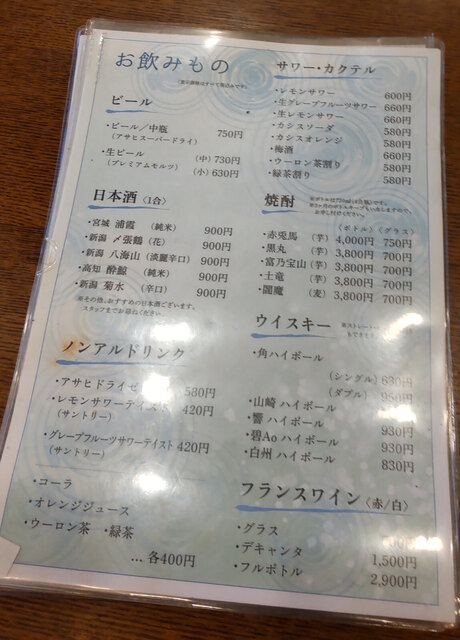 お飲みもの
(表示価格はすべて税込みです。)
ビール
・ビール/中瓶 750円
(アサヒスーパードライ)
・生ビール (中) 730円
(プレミアムモルツ) (小) 630円
日本酒〈1合〉
・宮城 浦霞 (純米) 900円
・新潟 〆張鶴 (花) 900円
・新潟 八海山 (淡麗辛口) 900円
・高知 酔鯨 (純米) 900円
・新潟 菊水 (辛口) 900円
※その他、おすすめの日本酒ございます。
スタッフまでお尋ねください。
ノンアルドリンク
・アサヒドライゼ 580円
・レモンサワーテイスト 420円
(サントリー)
・グレープフルーツサワーテイスト 420円
(サントリー)
・コーラ
・オレンジジュース
・ウーロン茶 ・緑茶
… 各400円
サワー・カクテル
・レモンサワー 600円
・生グレープフルーツサワー 660円
・生レモンサワー 660円
・カシスソーダ 580円
・カシスオレンジ 580円
・梅酒 660円
・ウーロン茶割り 580円
・緑茶割り 580円
焼酎
※ボトルは720ml(4合瓶)です。
※3ヶ月のボトルキープもいたしますので、
お申し付けください。
(ボトル) (グラス)
・赤兎馬 (芋) 4,000円 750円
・黒丸 (芋) 3,800円 700円
・富乃宝山 (芋) 3,800円 700円
・土竜 (芋) 3,800円 700円
・閻魔 (麦) 3,800円 700円
ウイスキー
※ストレート・
もできます
・角ハイボール
(シングル) 630円
(ダブル) 950円
・山崎 ハイボール
・響 ハイボール 930円
・碧Ao ハイボール 930円
・白州 ハイボール 830円
フランスワイン〈赤/白〉
・グラス
・デキャンタ 1,500円
・フルボトル 2,900円